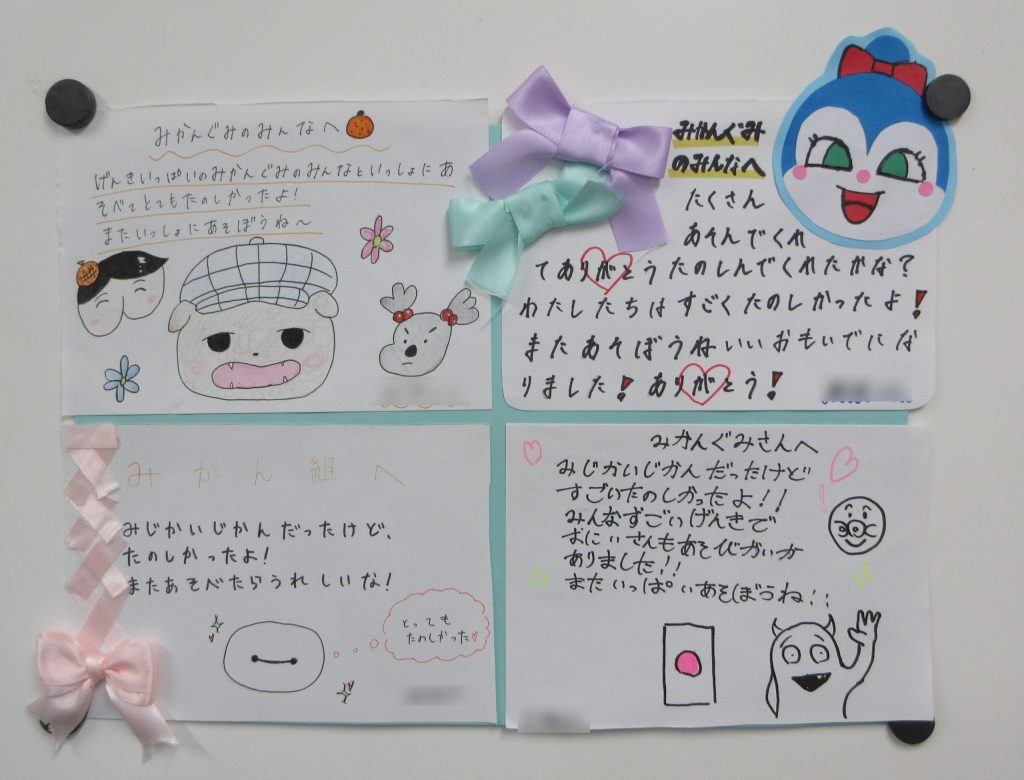 みかんぐみのみんなへ
げんきいっぱいのみかんぐみのみんなといっしょにあ
そべてとてもたのしかったよ!
またいっしょにあそぼうね〜
みかんぐみ
のみんなへ
たくさん
あそんでくれ
てありがとうたのしんでくれたかな?
わたしたちはすごくたのしかったよ!
またあそぼうねいいおもいでにな
りました!ありがとう!
みかん組へ
みじかいじかんだったけど、
たのしかったよ!
またあそべたらうれしいな!
とっても
たのしかった
みかんぐみさんへ
みじかいじかんだったけど
すごいたのしかったよ!!
みんなすごいげんきで
おにいさんもあそびがいが
ありました!!
またいっぱいあそぼうね!!